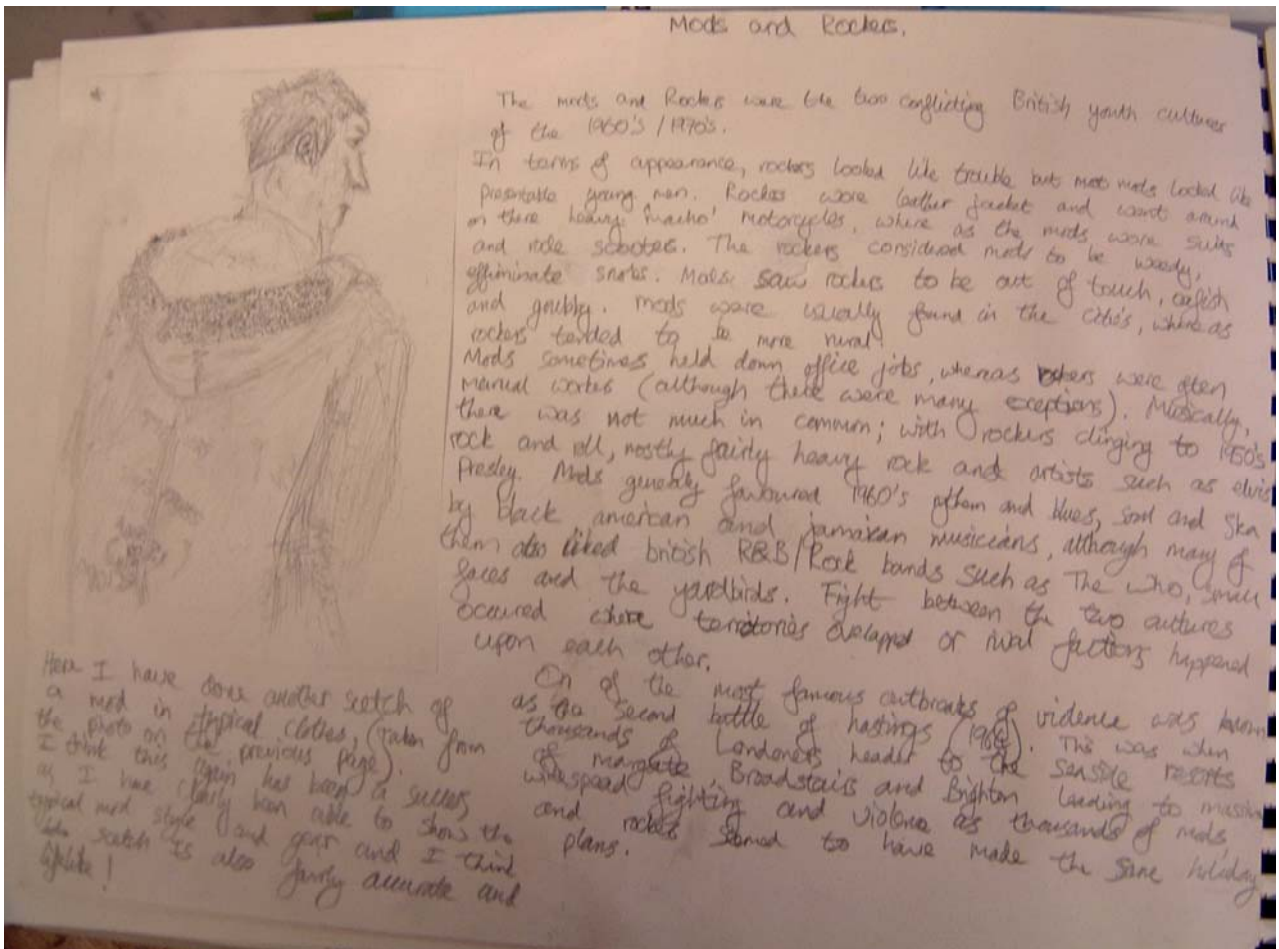 Mods and Rockers.
The mods and Rockers were the two conflicting British youth cultures
of the 1960's / 1970's.
In terms of appearance, rockers looked like trouble but most mods looked like
presentable young men. Rockers wore leather jacket and went around
on there heavy 'macho' motorcycles, where as the mods wore suits
and rode scooters. The rockers considered mods to be weedy,
effiminate snobs. Mods saw rockers to be out of touch, oafish
and grubby. Mods were usually found in the cities, where as
rockers tended to be more rural.
Mods sometimes held down office jobs, whereas rockers were often
manual workes (although there were many exceptions). Musically,
there was not much in common; with rockers clinging to 1950's
rock and roll, mostly fairly heavy rock and artists such as elvis
Presley. Mods generaly favoured 1960's rythem and blues, soul and Ska
by black american and jamaican musicians, although many of
them also liked british R&B/Rock bands such as The Who, small
faces and the yardbirds. Fight between the two cultures
occured where territories overlapped or rival factions happened
upon each other.
On of the most famous outbreaks of violence was known
as the second battle of hastings (1964). This was when
thousands of Londoners header to the seaside resorts
of margate, Broadstairs and Brighton leading to massive
widespread fighting and violence as thousands of mods
and rockers seemed to have made the same holiday
plans.
Here I have done another scetch of
a mod in typical clothes, (taken from
the photo on the previous page).
I think this again has been a success
as I have clearly been able to show the
typical mod style and gear and I think
the scetch is also fairly accurate and
lifelike!